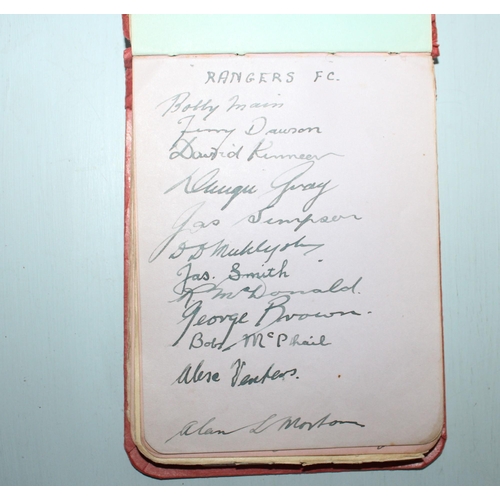 RANGERS F.C.
Bobby Main
Jimmy Dawson
David Kinnear
Dougie Gray
Jas Simpson
Jas. Smith
R McDonald.
George Brown.
Bob McPhail
Alex Venters.
Alan L Morton